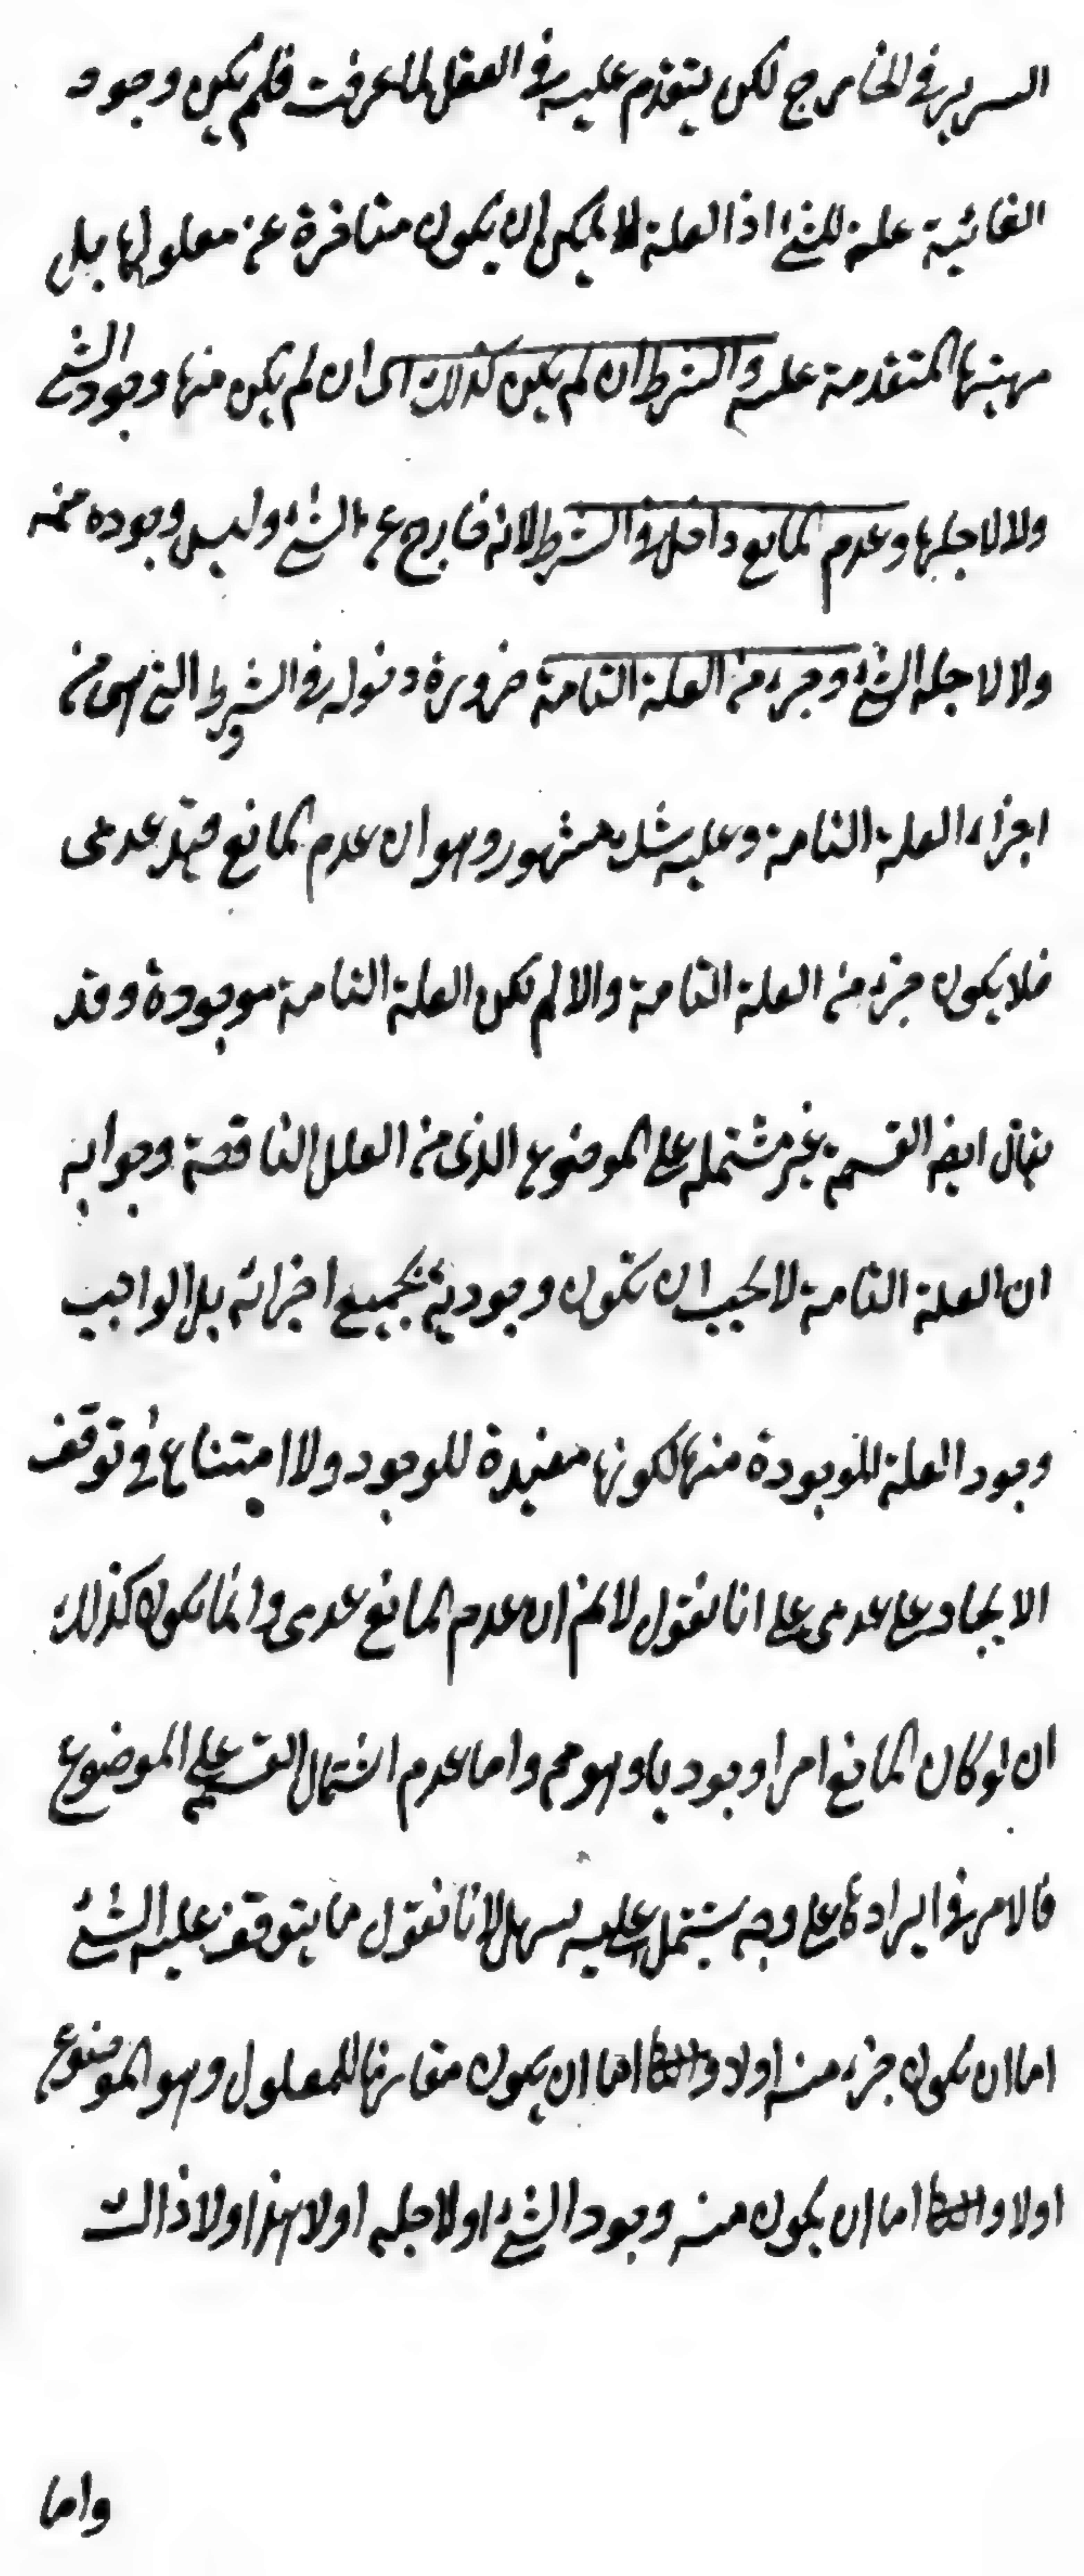 السرير في الخارج لكن يتقدم عليه في العقل لما عرفت فلم يكن وجود
الغائية علة للشئ اذ العلة لا يمكن ان يكون متاخرة عن معلولها بل
مهيتها المتقدمة عليه والشرط ان لم يكن كذلك اى ان لم يكن منها وجود الشئ
ولا لاجلها وعدم المانع داخل في الشرط لانه خارج عن الشئ وليس وجوده منه
ولا لاجله الشئ وجزء من العلة التامة ضرورة دخوله في الشرط التي هى من
اجزاء العلة التامة وعليه شك مشهور وهو ان عدم المانع قيد عدمى
فلا يكون جزء من العلة التامة والا لم تكن العلة التامة موجودة وقد
يقال ايضه القسمة غير مشتملة على الموضوع الذى من العلل الناقصة وجوابه
ان العلة التامة لا يجب ان تكون وجودية بجميع اجزائه بل الواجب
وجود العلة الموجودة منها لكونها مفيدة للوجود ولا امتناع في توقف
الايجاد على عدمى على انا نقول لا نم ان عدم المانع عدمى وانما يكون كذلك
ان لو كان المانع امرا وجوديا وهو مم واما عدم اشتمال القسمة على الموضوع
فالامر في ايرادها على وجه يشتمل عليه سهل لانا نقول ما يتوقف عليه الشئ
اما ان يكون جزء منه اولا و اما ان يكون مقارنا للمعلول وهو الموضوع
اولا و اما ان يكون منه وجود الشئ اولاجله اولا هذا ولا ذاك
واما